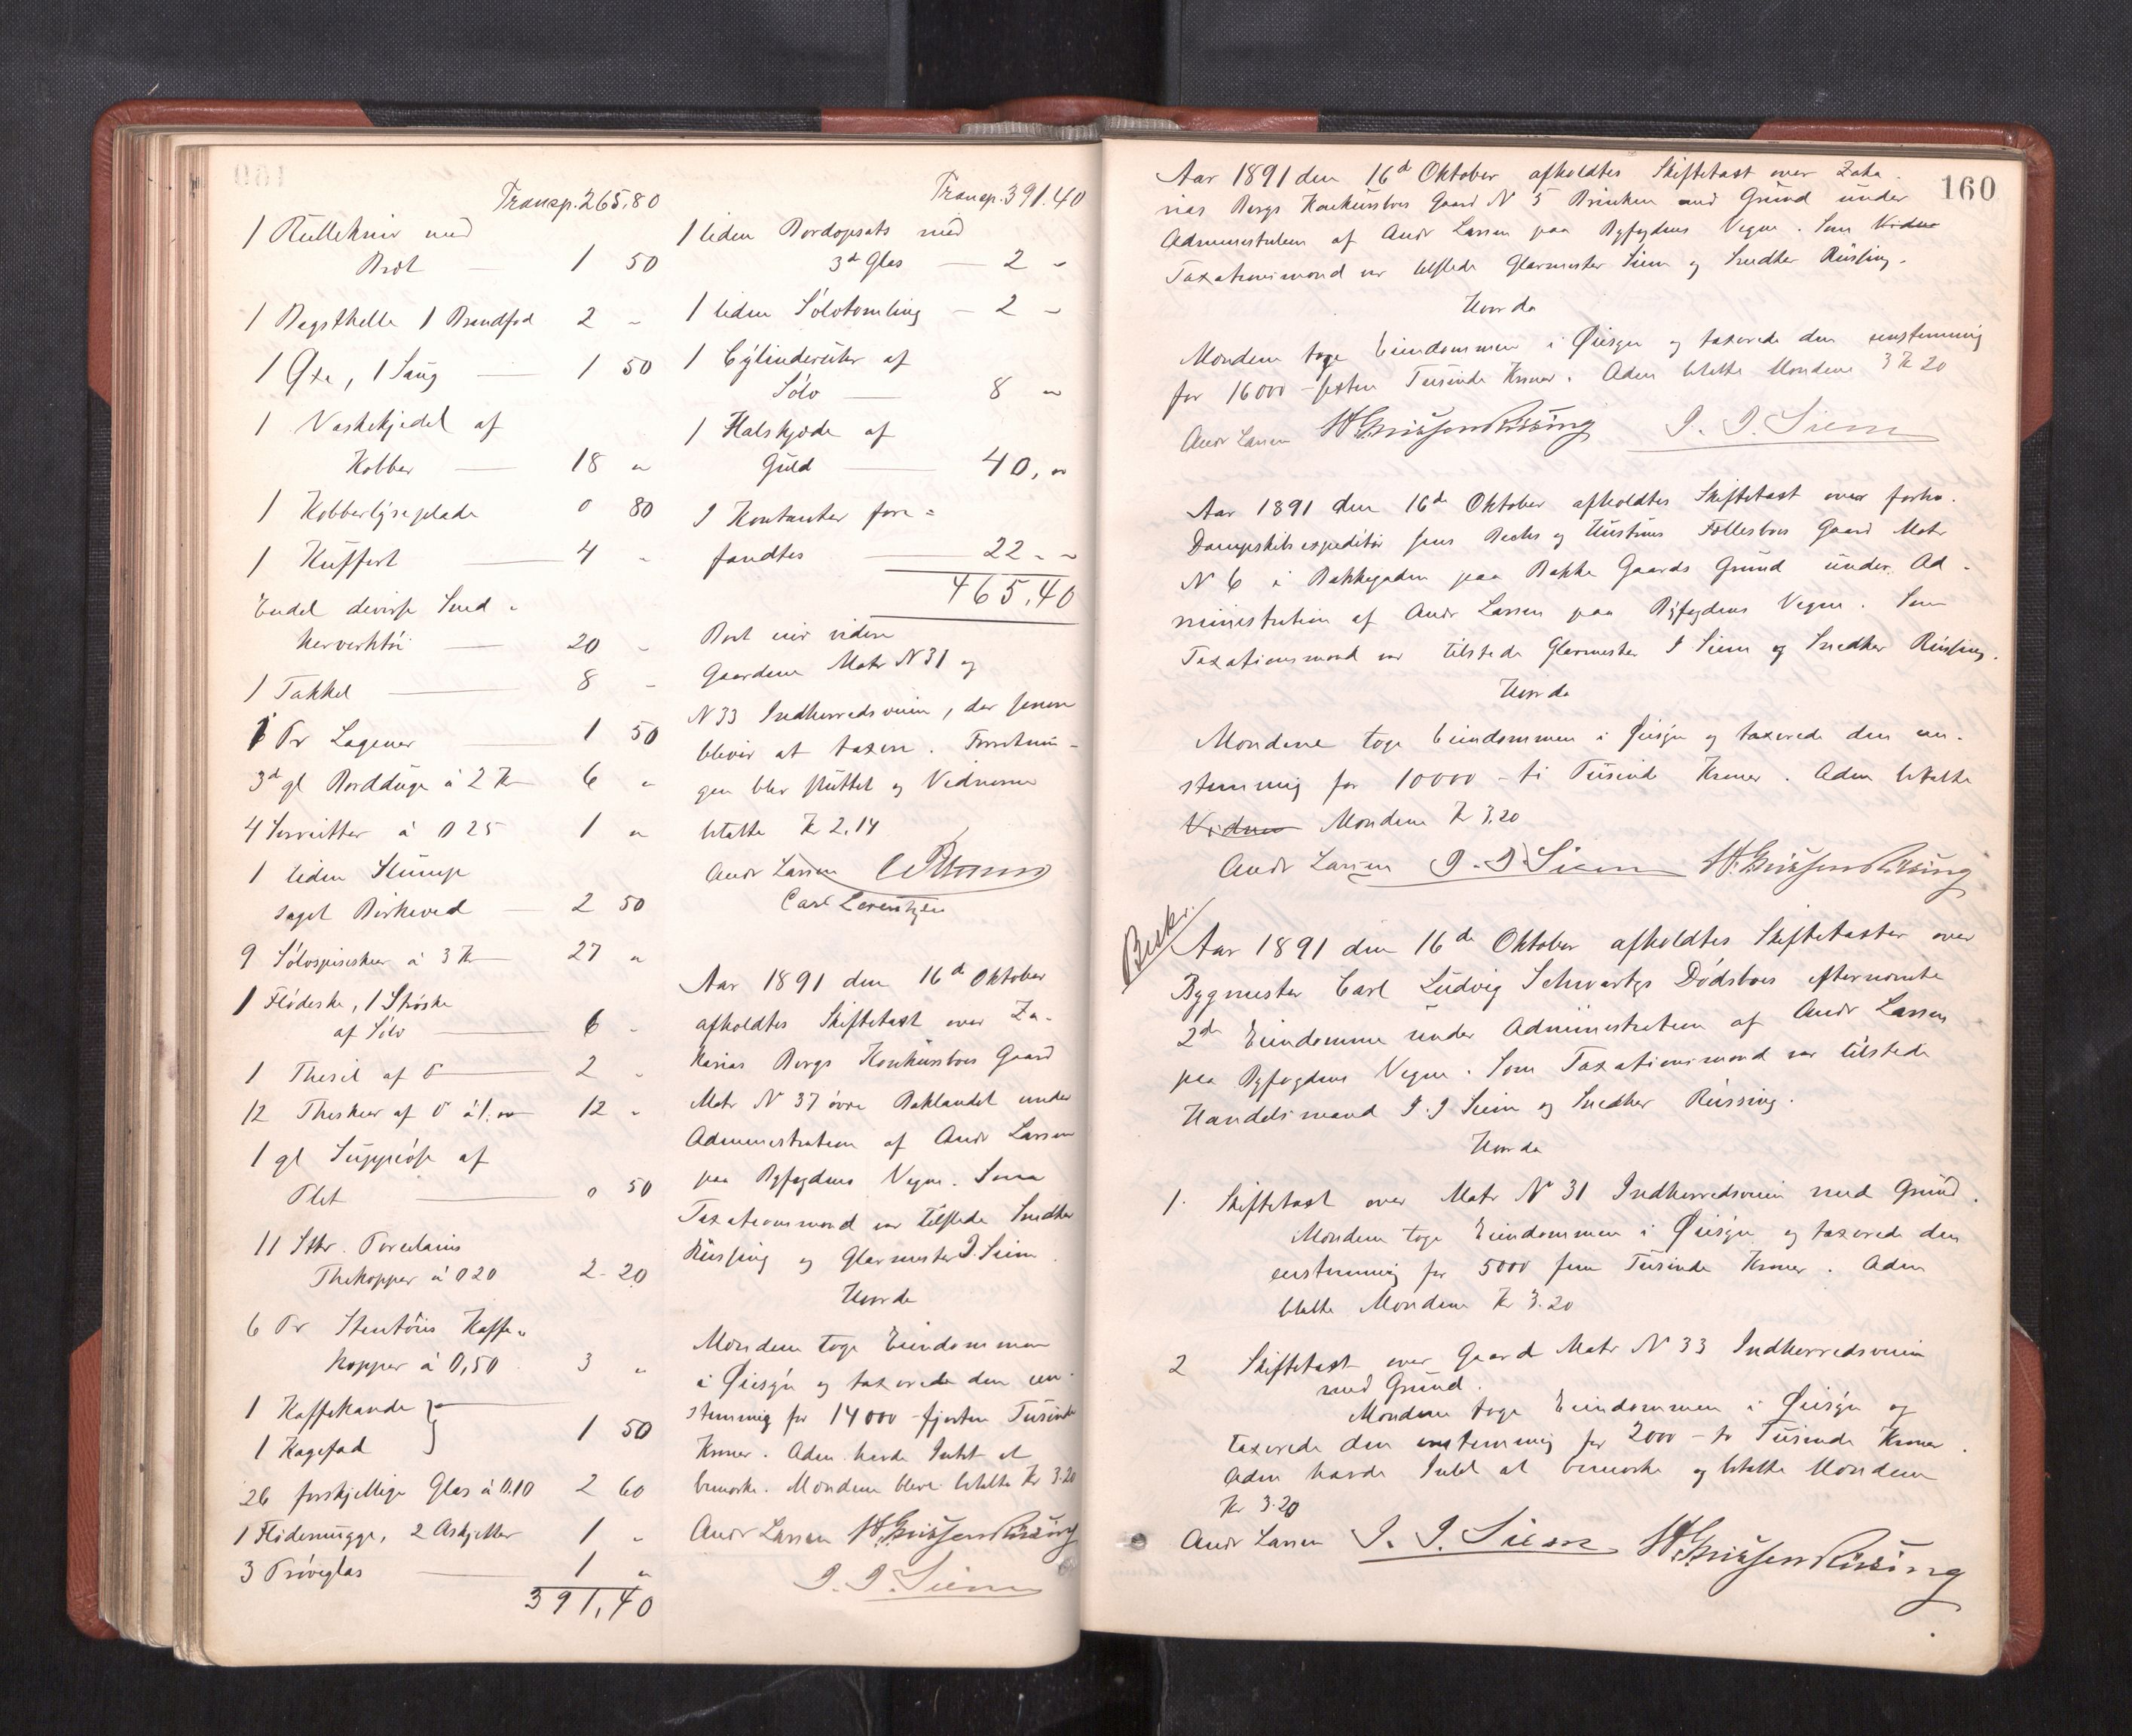 Transp. 265,80
1 Rullekniv med
Bræt — 1 50
1 Bagsthelle 1 Brandfod 2 -
1 Øxe, 1 Saug — 1 50
1 Vaskekjedel af
Kobber — 18 "
1 Kobberlyseplade 0 80
1 Kuffert — 4 -
Endel diverse Sned-
kerverktöi — 20 -
1 Takkel — 8 -
1 Pr Lagener — 1 50
3de gl Bordduge á 2 Kr 6 "
4 Servietter á 0 25 1 "
1 liden Stump
saget Birkeved — 2 50
9 Sölvspiseskeer á 3 Kr 27 "
1 Flödeske, 1 Ströske
af Sölv — 6 -
1 Thesil af D — 2 -
12 Theskeer af D á 1. " 12 -
1 gl Suppeöse af
Plet — 0 50
11 Stkr. Porcelains
Thekopper á 0 20 2 - 20
6 Pr Stentöis Kaffe-
kopper á 0,50 3 "
1 Kaffekande }
1 Kagefad } 1 50
26 forskjellige Glas á 0.10 2 60
1 Flödemugge, 2 Askjetter 1 -
3 Pröveglas — 1 "
391,40
Transp. 391.40
1 liden Bordopsats med
3de Glas — 2 -
1 liden Sölvtomling — 2 -
1 Cylinderuhr af
Sölv — 8 "
1 Halskjæde af
Guld — 40, "
I Kontanter fore-
fandtes — 22 - -
465,40
Boet eier videre
Gaardene Matr N 31 og
N 33 Indherredsveien, der senere
bliver at taxere. Forretnin-
gen blev sluttet og Vidnerne
betalte Kr 2.14
Andr Larsen
Carl Lorentzen
Aar 1891 den 16de Oktober
afholdtes Skiftetaxt over Za-
karias Bergs Konkursboes Gaard
Matr N 37 övre Baklandet under
Administration af Andr Larsen
paa Byfogdens Vegne. Som
Taxationsmænd var tilstede Snedker
Rüssing og Glarmester I. Siem.
Hvorda
Mændene toge Eiendommen
i Öiesyn og taxerede den en-
stemmig for 14000 - fjorten Tusinde
Kroner. Adm. havde Intet at
bemærke. Mændene bleve betalte Kr 3.20
Andr Larsen H. Grüssen Rüsing
I. I. Siem
160
Aar 1891 den 16de Oktober afholdtes Skiftetaxt over Zaka-
rias Bergs Konkursboes Gaard N 5 Brinken med Grund under
Administration af Andr Larsen paa Byfogdens Vegne. Som Vidne
Taxationsmænd var tilstede Glarmester Siem og Snedker Rüssing.
Hvorda
Mændene toge Eiendommen i Öiesyn og taxerede den enstemmig
for 16000 - sexten Tusinde Kroner. Adm betalte Mændene 3 Kr 20
Andr Larsen H. Grüssen Rüsing I. I. Siem
Aar 1891 den 16de Oktober afholdtes Skiftetaxt over forhv.
Dampskibsexpeditör Jens Bechs og Hustrus Fællesboes Gaard Matr
N 6 i Bakkegaden paa Bakke Gaards Grund under Ad-
ministration af Andr Larsen paa Byfogdens Vegne. Som
Taxationsmænd var tilstede Glarmester I Siem og Snedker Rüssing.
Hvorda
Mændene toge Eiendommen i Öiesyn og taxerede den en-
stemmig for 10000 - ti Tusinde Kroner. Adm betalte
Vidnes Mændene Kr 3.20
Andr Larsen I. I. Siem H. Grüssen Rüsing
Besk.
Aar 1891 den 16de Oktober afholdtes Skiftetaxter over
Bygmester Carl Ludvig Schwartz Dödsboes efternævnte
2de Eiendomme under Administration af Andr Larsen
paa Byfogdens Vegne. Som Taxationsmænd var tilstede
Handelsmand I. I Siem og Snedker Rüssing.
Hvorda
1. Skiftetaxt over Matr N 31 Indherredsveien med Grund.
Mændene toge Eiendommen i Öiesyn og taxerede den
enstemmig for 5000 fem Tusinde Kroner. Adm
betalte Mændene Kr 3.20
2 Skiftetaxt over Gaard Matr N 33 Indherredsveien
med Grund.
Mændene toge Eiendommen i Öiesyn og
taxerede den enstemmig for 2000 - to Tusinde Kroner.
Adm havde Intet at bemærke og betalte Mændene
Kr 3.20
Andr Larsen I. I. Siem H. Grüssen Rüsing